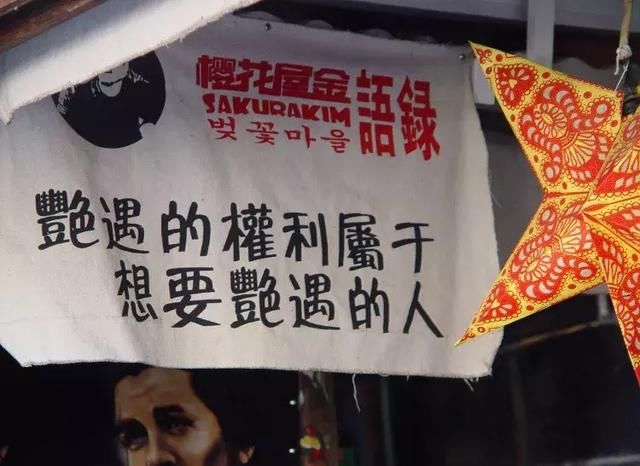 櫻花屋金
SAKURAKIM
벚꽃마을
語録
艷遇的權利屬于
想要艷遇的人